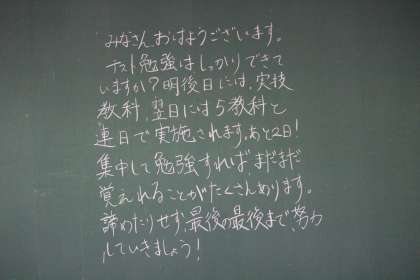 みなさん、おはようございます。
テスト勉強はしっかりできて
いますか?明後日には、実技
教科、翌日には5教科と
連日で実施されます。あと2日!
集中して勉強すれば、まだまだ
覚えれることがたくさんあります。
諦めたりせず、最後の最後まで、努力
していきましょう!